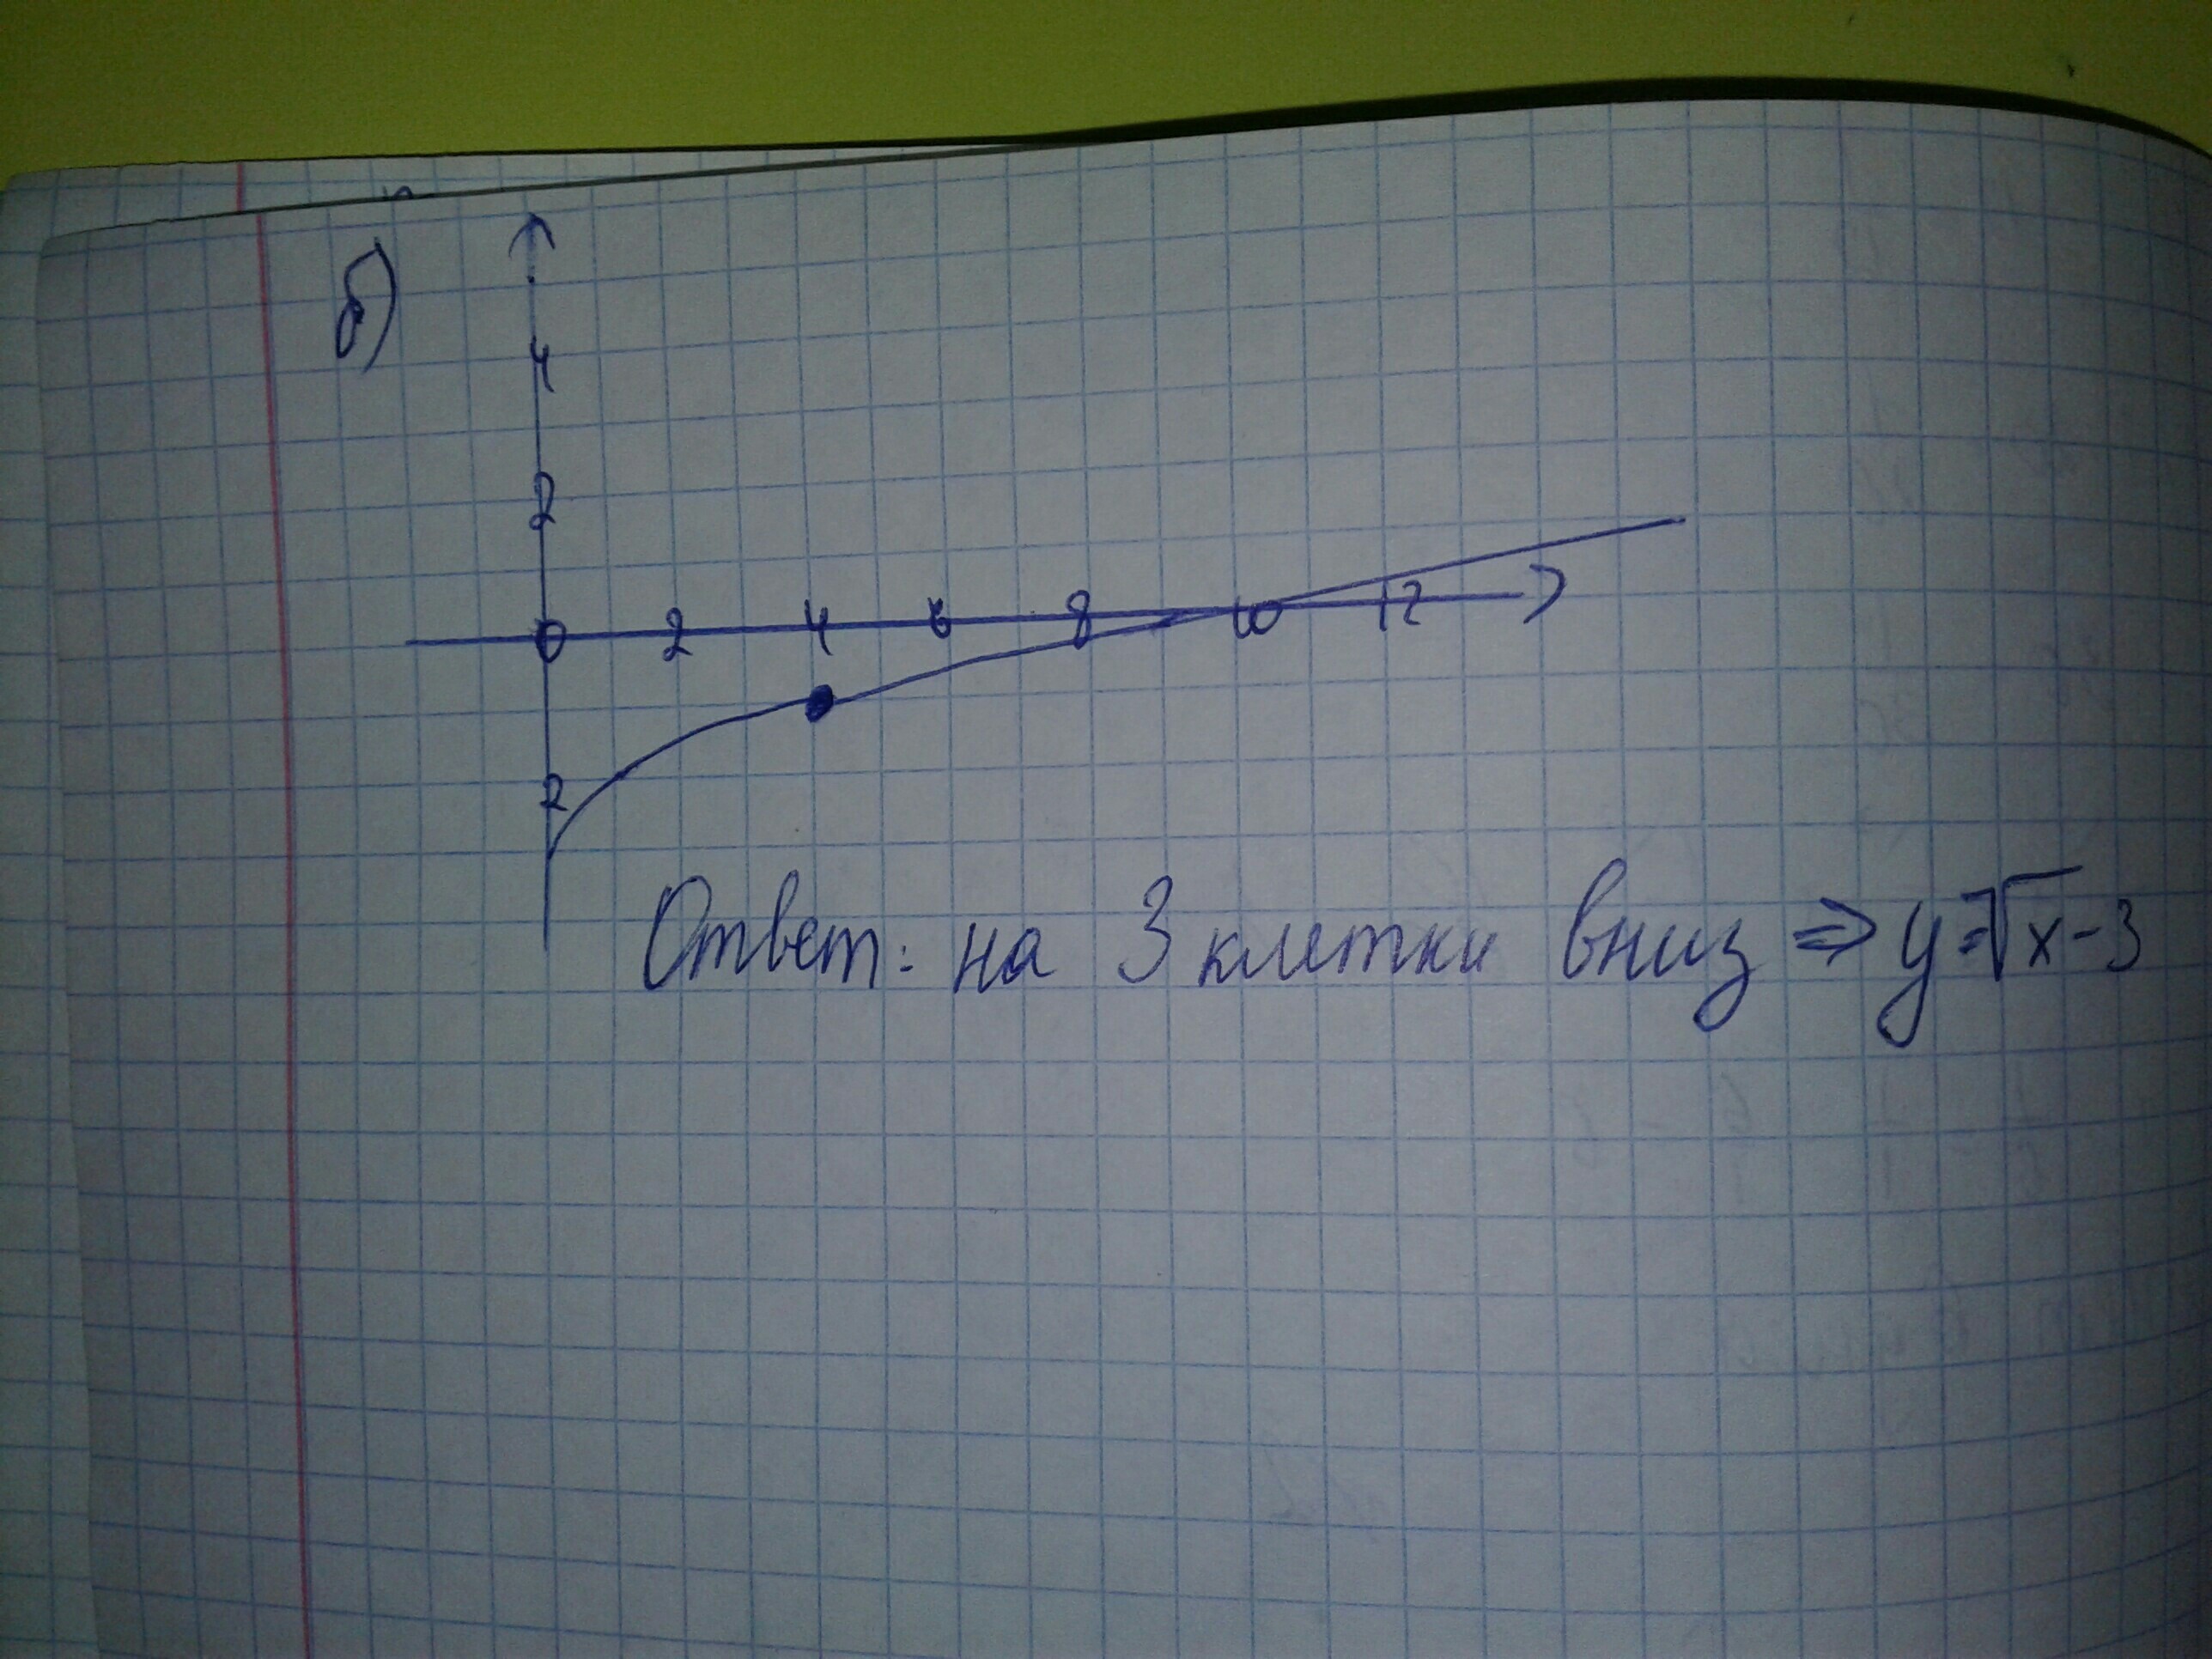 б)
4
2
0 2 4 6 8 10 12
2
Ответ: на 3 клетки вниз ⇒ y=√x-3